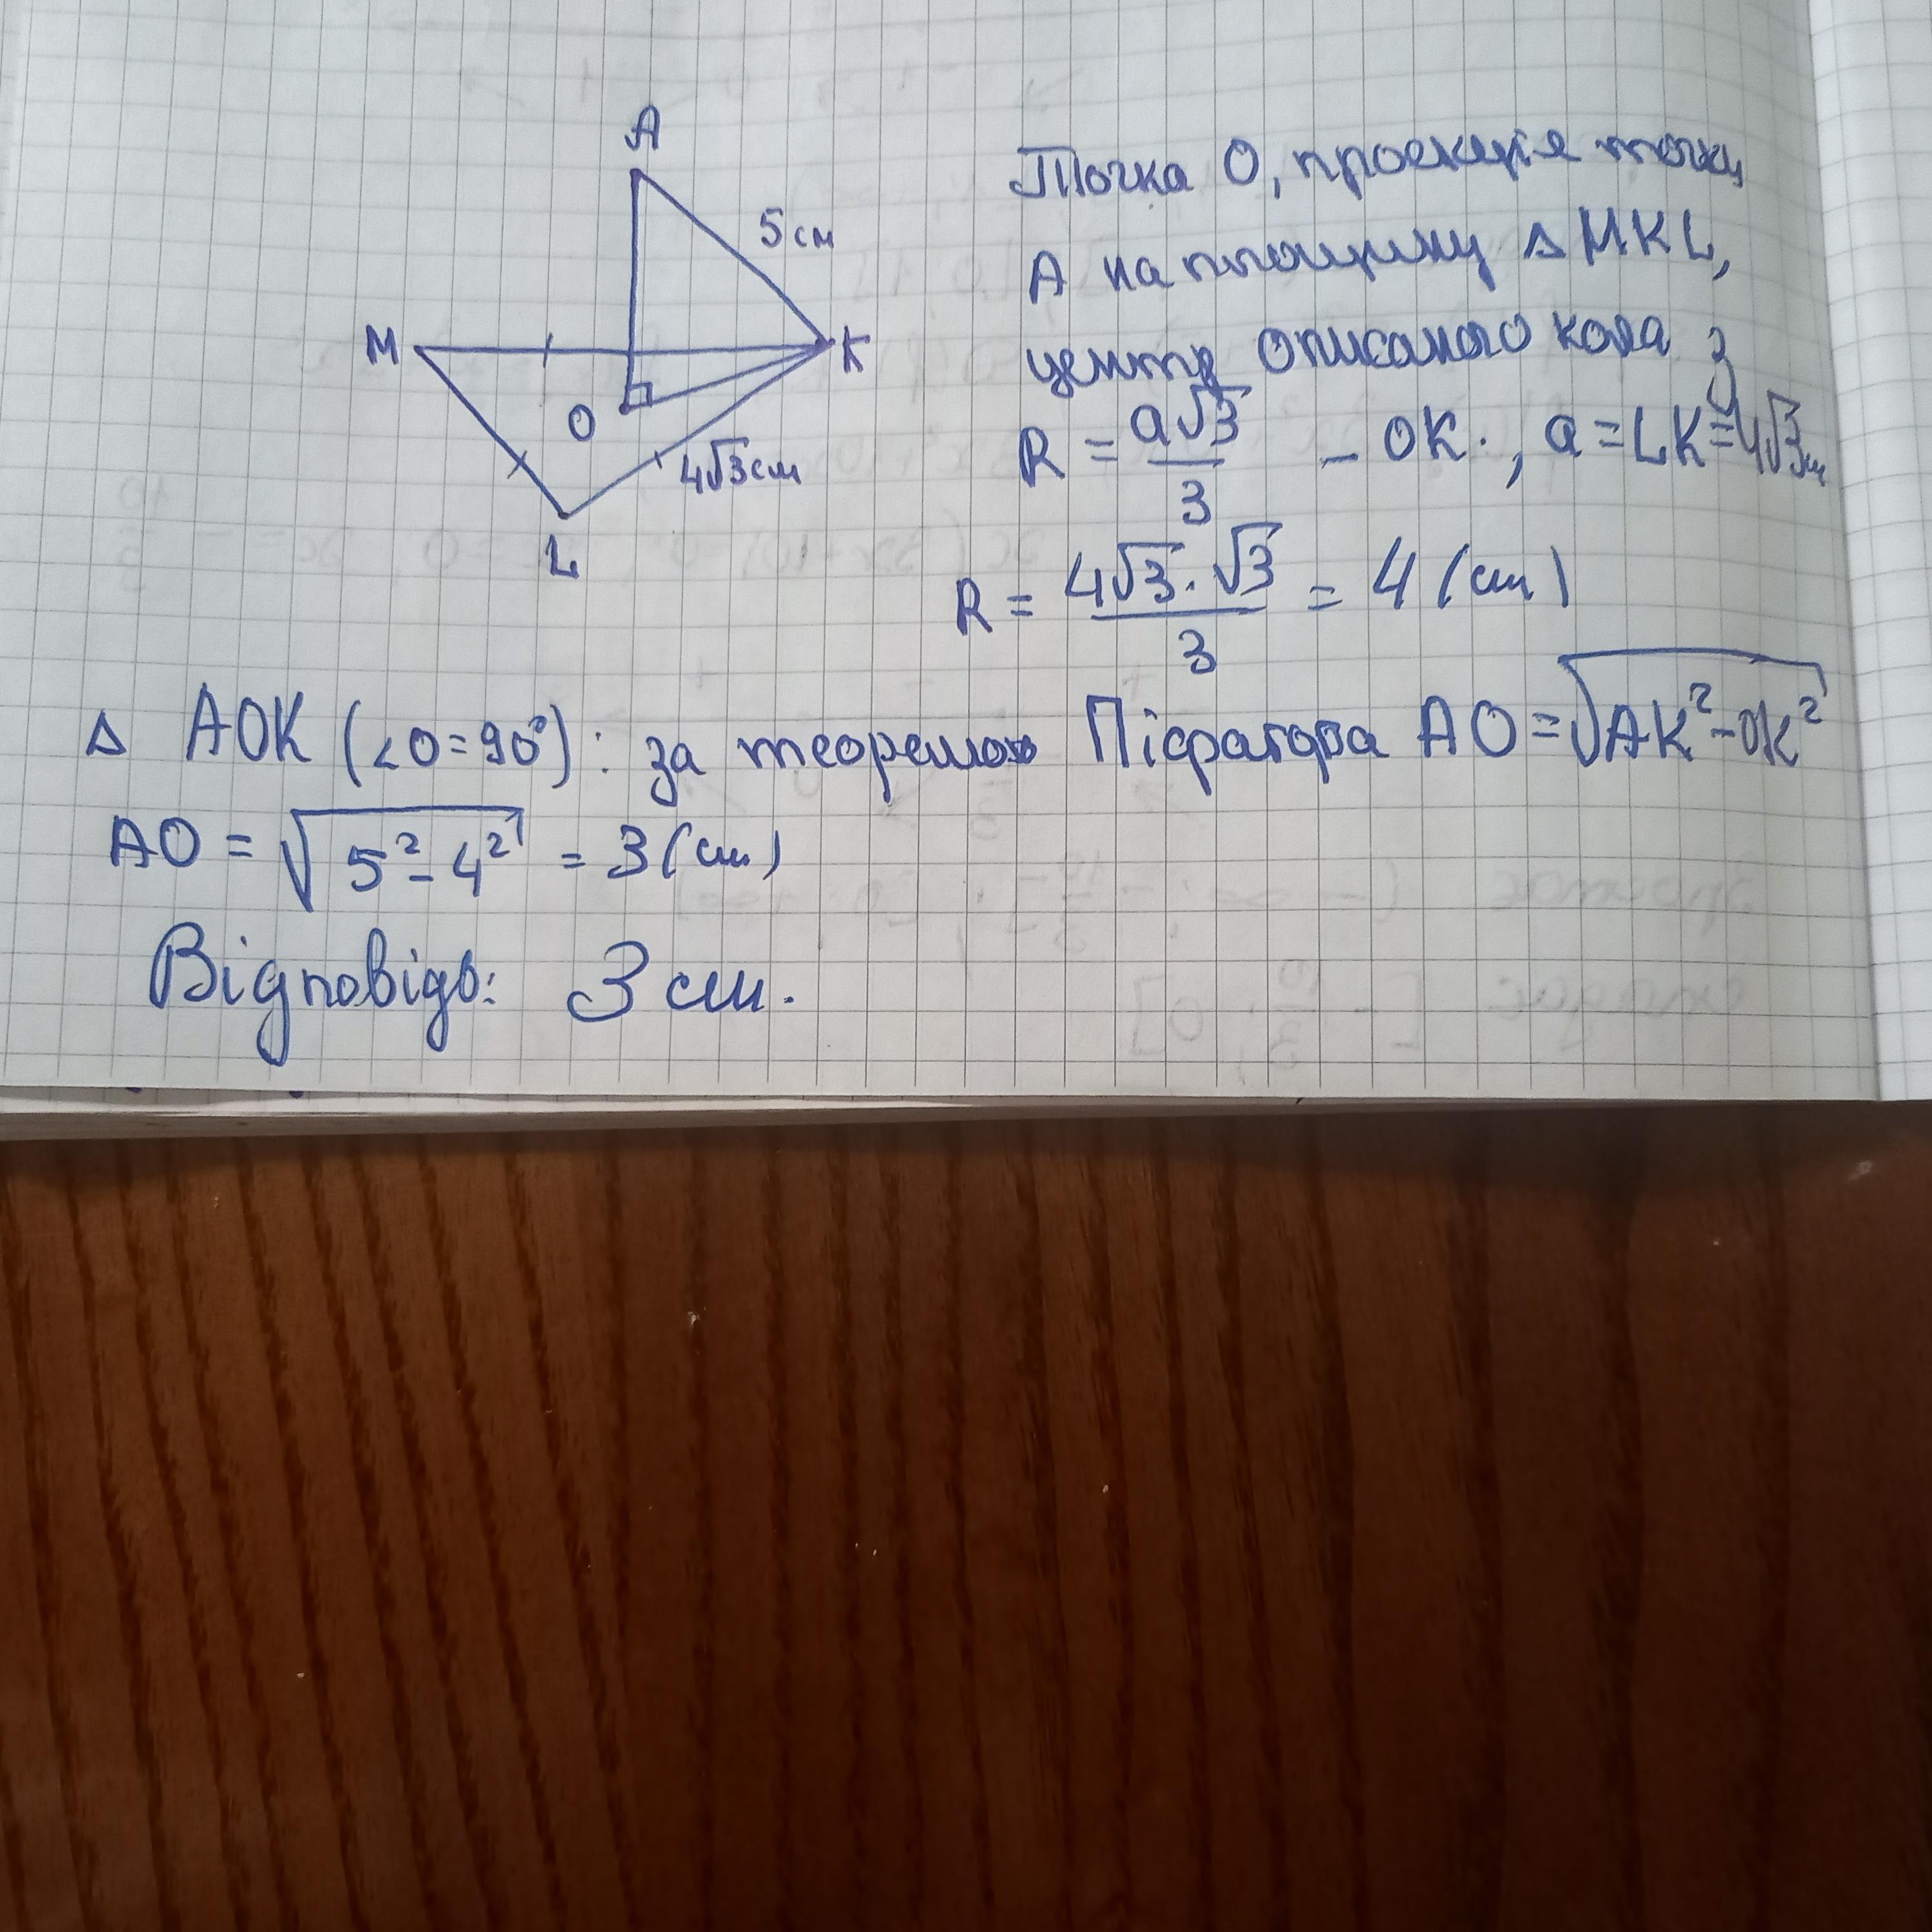 A
5 см
M
K
O
4√3 см
L
Точка О, проекція точки
А на площину Δ MKL,
центр описаного кола з
R = a√3/3 - OK., a = LK = 4√3 см
R = 4√3·√3/3 = 4 (см)
Δ AOK (<O=90°): за теоремою Піфагора AO = √AK²-OK²
AO = √5²-4² = 3 (см)
Відповідь: 3 см.